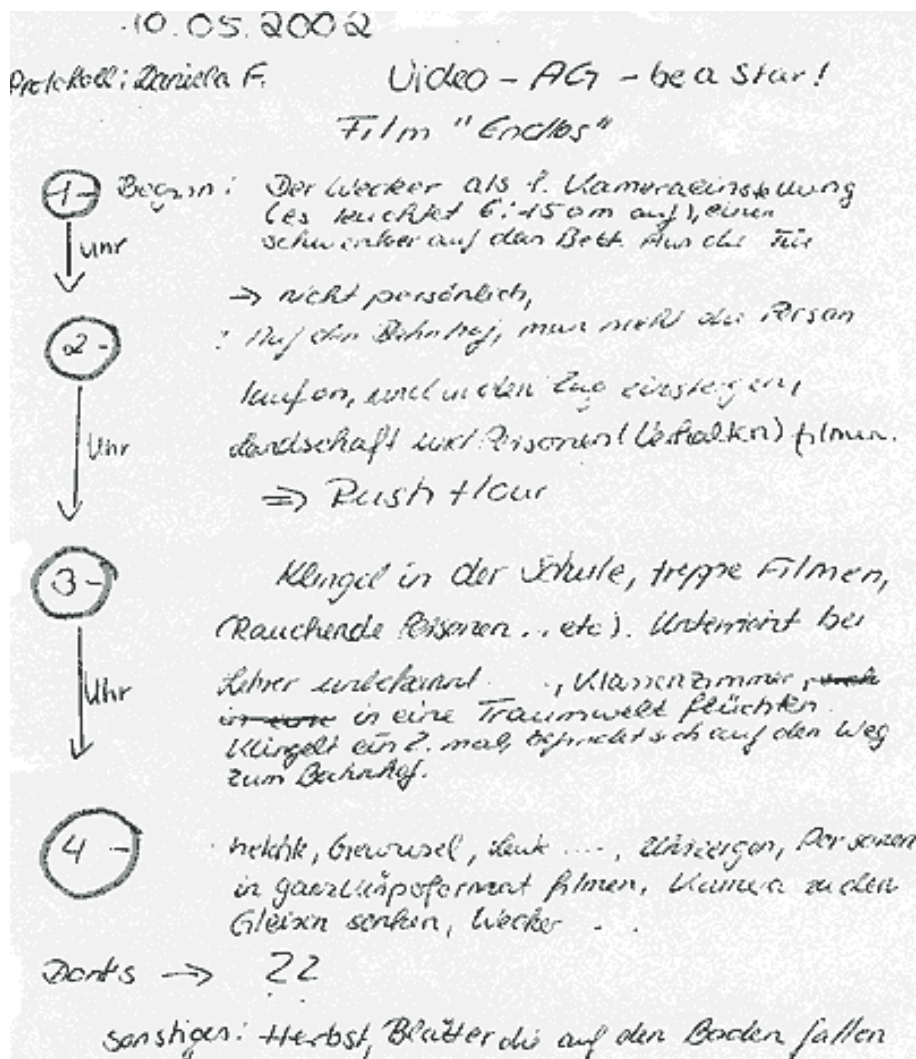 10.05.2002
Protokoll: Daniela F. Video - AG - be a Star!
Film "Endlos"
-1- Beginn: Der Wecker als 1. Kameraeinstellung
(es leuchtet 6:15 am auf), einen
Uhr schwenker auf den Bett. Aus die Tür
→ nicht persönlich,
2- : Auf den Bahnhof, man sieht die Person
laufen, und in den Zug einsteigen,
Uhr Landschaft und Personen (Verhalten) filmen.
⇒ Rush Hour
3- Klingel in der Schule, treppe Filmen,
(Rauchende Personen... etc). Unterricht bei
Uhr Lehrer unbekannt ..., Klassenzimmer,
in eine Traumwelt flüchten.
Klingelt ein 2. mal, befindet sich auf den Weg
zum Bahnhof.
4- hektik, Gewusel, ...., Personen
in ganzkörperformat filmen, Kamera zu den
Gleisen senken, Wecker . .
Donts → ??
sonstiges: Herbst, Blätter die auf den Boden fallen